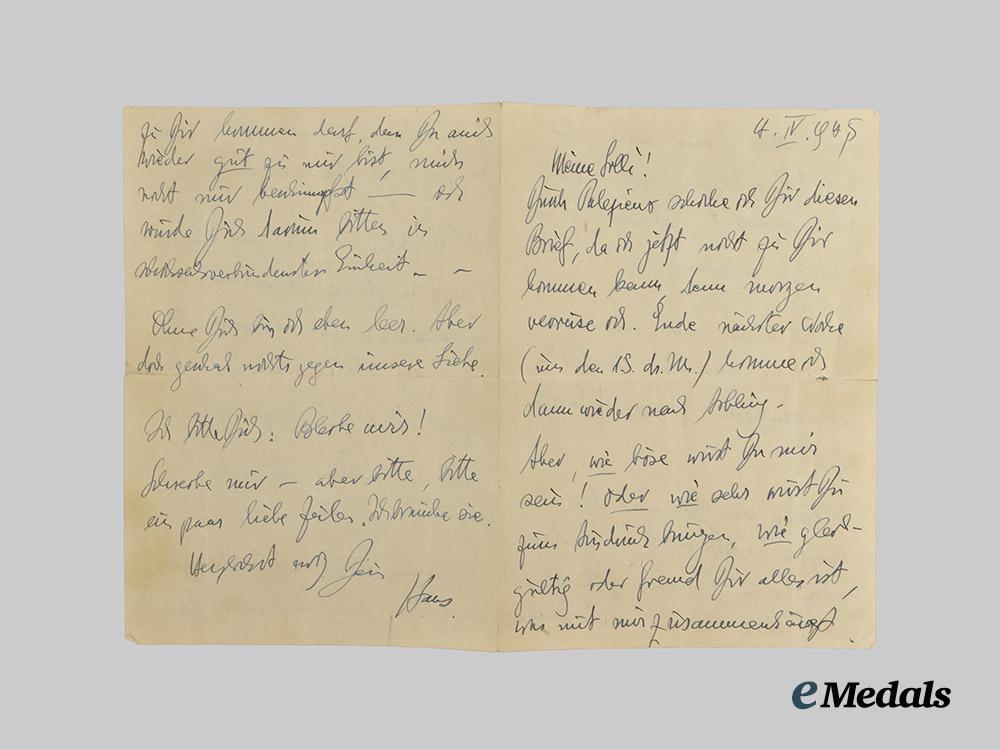 4. IV. 1945
Meine Lolli!
Durch schicke ich Dir diesen
Brief, da ich jetzt nicht zu Dir
kommen kann, denn morgen
verreise ich. Ende nächster Woche
(um den 15. ds. Ms.) komme ich
dann wieder nach
Aber, wie böse wirst Du mir
sein! Oder wie sehr wirst Du
zum Ausdruck bringen, wie gleich-
gültig oder fremd Dir alles ist,
was mit mir zusammenhängt.
zu Dir kommen darf, dem Du auch
wieder gut zu mir bist, mich
nicht nur beschimpfst — ich
würde Dich darum bitten in
schicksalsverbundenster Einheit – –
Ohne Dich bin ich eben leer. Aber
doch geschah nichts gegen unsere Liebe.
Ich bitte Dich: Bleibe mir!
Schreibe mir – aber bitte, bitte
ein paar liebe Zeilen. Ich brauche sie.
Herzlichst Dein
Hans.
eMedals